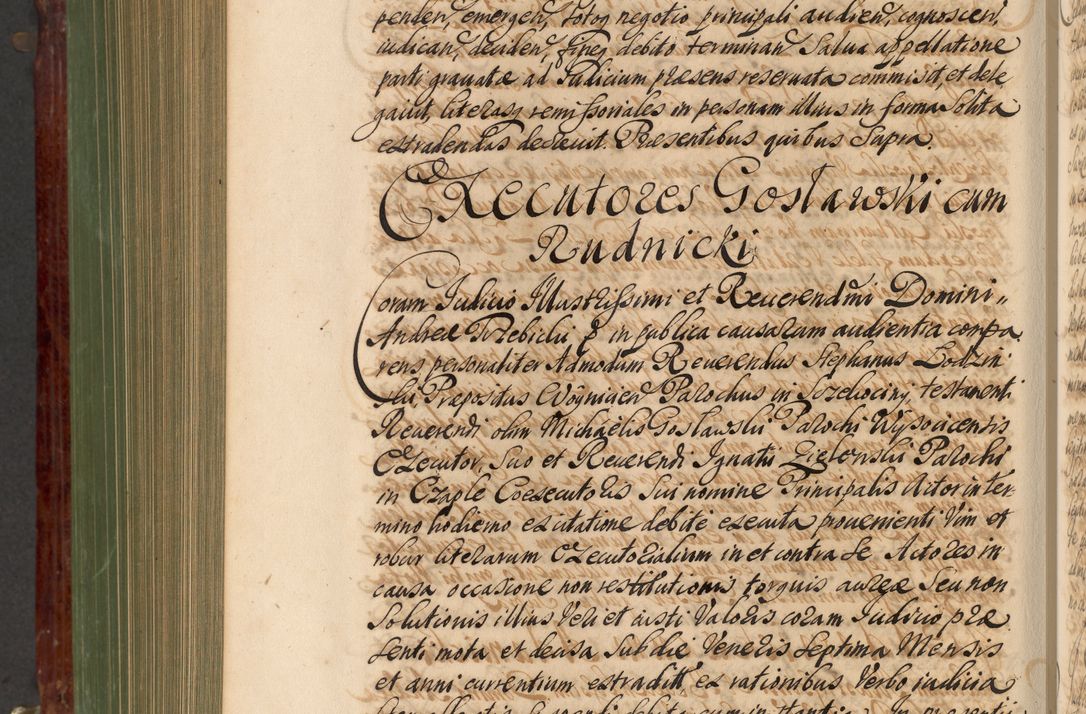 penden, emergen, totoq negotio principali audien, cognoscen,
iudican, deciden, fineq debito terminan Salua appellatione
parti grauatæ ad Judicium præsens reseruata commisit, et dele
gauit, literasq remissoriales in personam illius in forma solita
extradendas decreuit. Præsentibus quibus Supra.
Executores Gosławski cum
Rudnicki
Coram Judicio Illustrissimi et Reuerendmi Domini
Andreæ Trzebicki in publica causarum audientia compa
rens personaliter Admodum Reuerendus Stephanus Łodzin
ski Præpositus Woynicien Parochus in Strzelociny, testamenti
Reuerendi olim Michaelis Goslawski Parochi Wysocicensis
Executor, Suo et Reuerendi Ignatii Zielonski Parochi
in Czaple Coexecutoris Sui nomine Principalis Actor in ter
mino hodierno ex citatione debite executa proueniēti Vim et
robur literarum Executorialium in et contra se Actores in
causa occasione non restitutionis torquis aureæ Seu non
Solutionis illius Veri et iusti Valoris coram Iudicio præ
senti mota et decisa Sub die Veneris Septima Mensis
et anni currentium extradit, ex rationibus Verbo iudicia